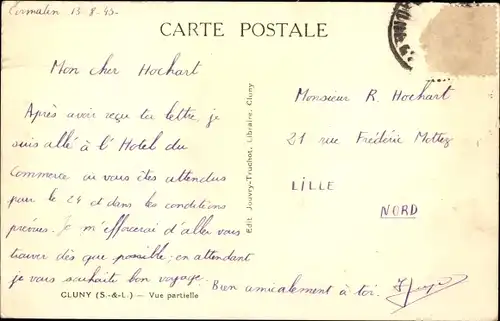 Cormatin 13-8-45-
CARTE POSTALE
Mon cher Hochart
Après avoir reçu ta lettre, je
suis allé à l'Hotel du
Commerce où vous êtes attendus
pour le 24 et dans les conditions
prévues. Je m'efforcerai d'aller vous
trouver dès que possible; en attendant
je vous souhaite bon voyage.
Bien amicalement à toi.
CLUNY (S.-&-L.) — Vue partielle
Edit. Jouvey-Truchot, Libraire, Cluny
Monsieur R. Hochart
21 rue Frédéric Mottez
LILLE
NORD